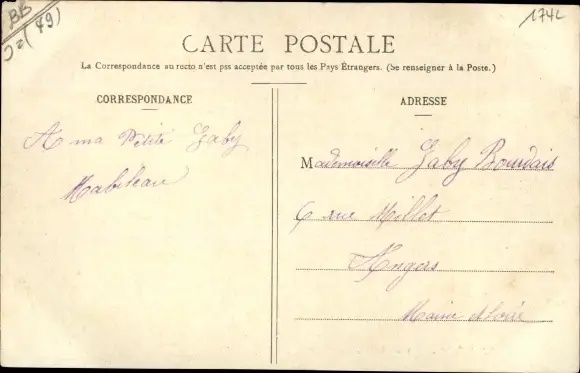 BB
(49)
174L
CARTE POSTALE
La Correspondance au recto n'est pas acceptée par tous les Pays Étrangers. (Se renseigner à la Poste.)
CORRESPONDANCE
A ma Petite Gaby
Mabileau
ADRESSE
Mademoiselle Gaby Bourdais
6 rue Millet
Angers
Maine et Loire